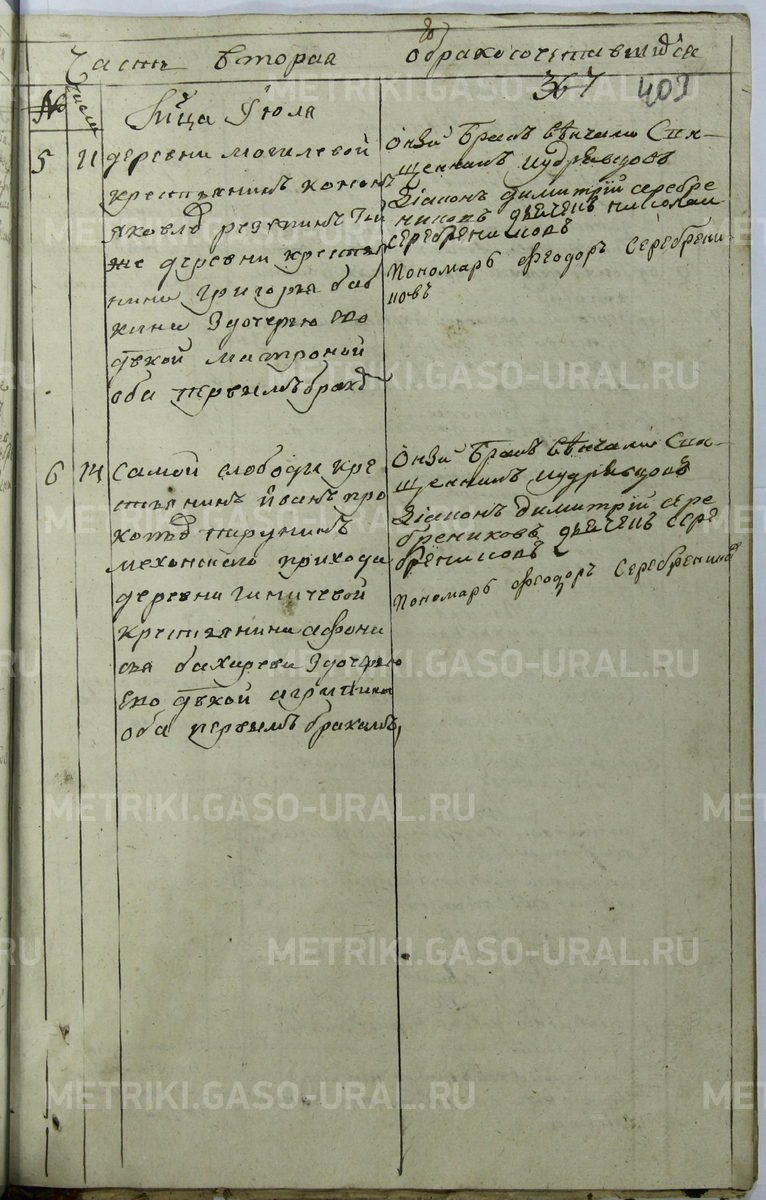 Часть вторая о бракосочетавшихся
367 403
№ Числ
Мца Iюля
5 11 деревни могилевой
крестьянинъ конон
яковлевъ резепинъ той
же деревни кресть
нина григорья баб
кина здочерью ево
дѣвкой матроной
оба первымъ брако
Онзи бракъ вѣнчали Свя-
щенникъ кудрявцовъ
Дiаконъ димитрiй серебре
никовъ дьячекъ николаи
серебрениковъ
Пономарь Феодоръ Серебрени-
ковъ
6 14 самой слободы кре
стьянинъ Иванъ про
копьевъ
мехонского прихода
деревни гиличевой
крестьянина афона
сья бахарева здочерью
ево дѣвкой агрипин
оба первымъ бракомъ
Онзи бракъ вѣнчали Свя-
щенникъ кудрявцовъ
Дiаконъ димитрiй сере
брениковъ дьячекъ сере
брениковъ
Пономарь Феодоръ Серебрениковъ
METRIKI.GASO-URAL.RU